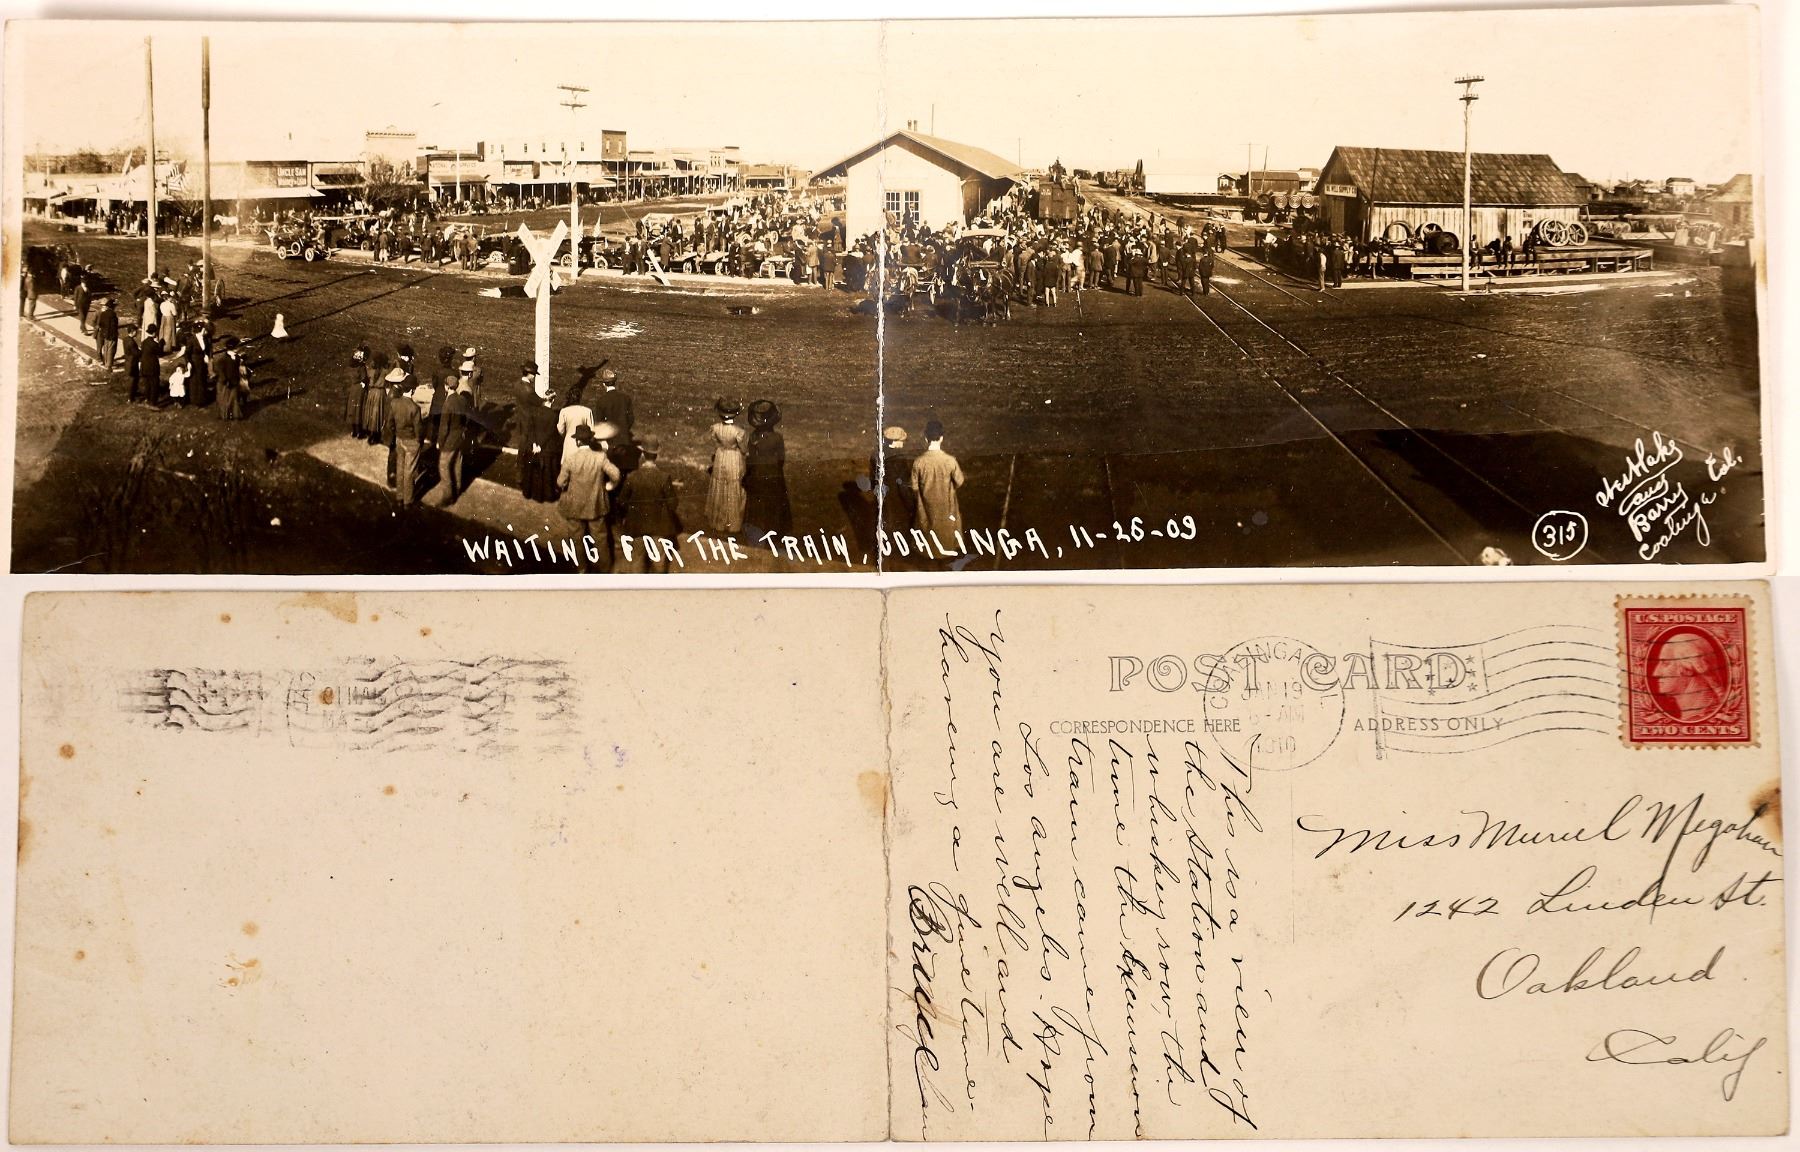 UNCLE SAM
WELL SUPPLY CO
WAITING FOR THE TRAIN, COALINGA, 11-26-09
315
Westlake
and
Barry
Coalinga Cal.
U.S. POSTAGE
TWO CENTS
POST CARD
COALINGA
JAN 19
6 - AM
1910
CORRESPONDENCE HERE
ADDRESS ONLY
This is a view of
the station and
whiskey row, the
time the Excursion
train came from
Los Angeles. Hope
you are well and
having a fine time.
Miss Muriel Megahan
1242 Linden St.
Oakland.
Calif